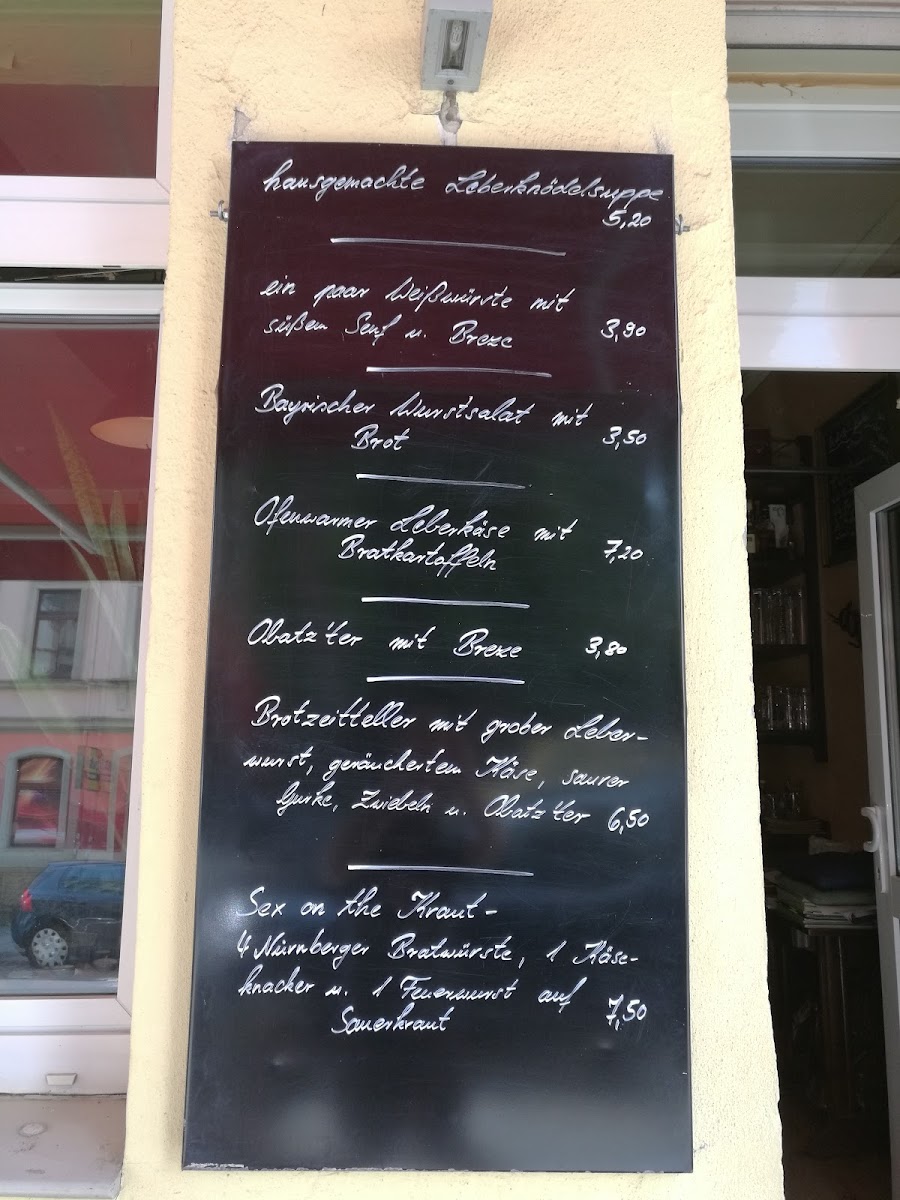 hausgemachte Leberknödelsuppe
5,20
ein paar Weißwürste mit
süßem Senf u. Breze 3,90
Bayrischer Wurstsalat mit
Brot 3,50
Ofenwarmer Leberkäse mit
Bratkartoffeln 7,20
Obatz'ter mit Breze 3,80
Brotzeitteller mit grober Leber-
wurst, geräuchertem Käse, saurer
Gurke, Zwiebeln u. Obatz'ter 6,50
Sex on the Kraut-
4 Nürnberger Bratwürste, 1 Käse-
knacker u. 1 Feuerwurst auf
Sauerkraut 7,50